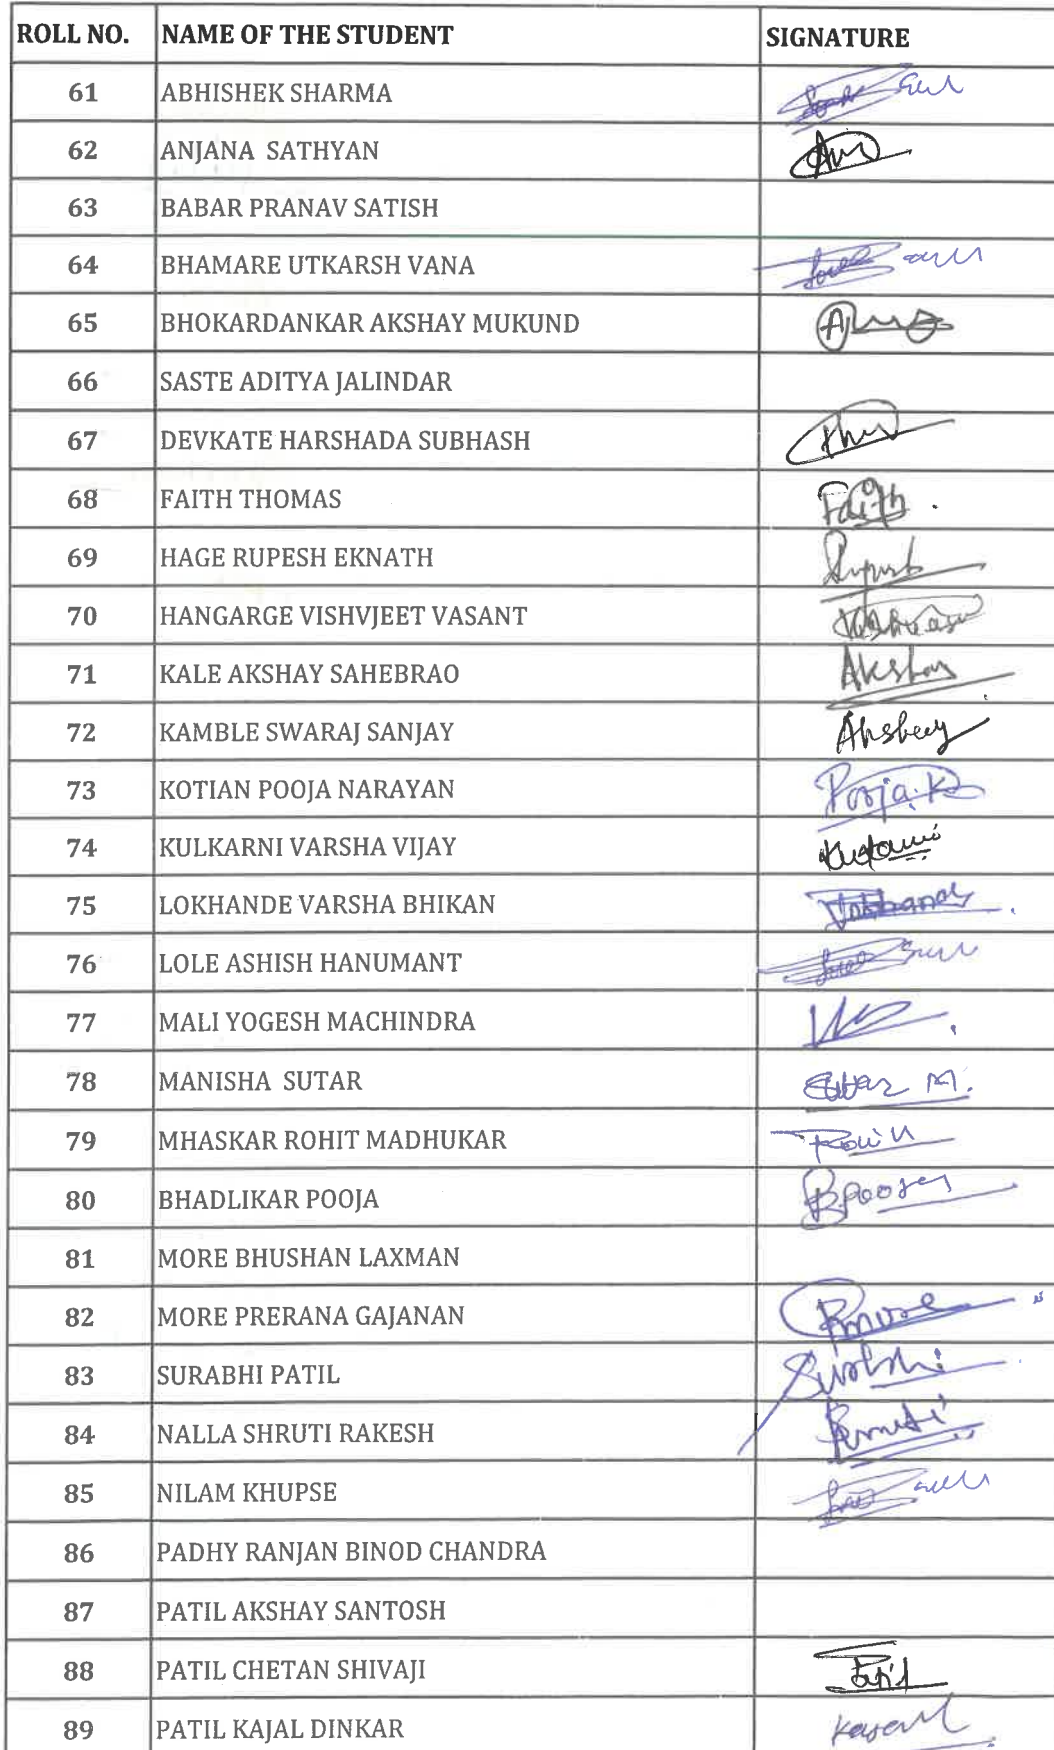 ROLL NO. NAME OF THE STUDENT SIGNATURE
61 ABHISHEK SHARMA
62 ANJANA SATHYAN
63 BABAR PRANAV SATISH
64 BHAMARE UTKARSH VANA
65 BHOKARDANKAR AKSHAY MUKUND
66 SASTE ADITYA JALINDAR
67 DEVKATE HARSHADA SUBHASH
68 FAITH THOMAS Faith
69 HAGE RUPESH EKNATH
70 HANGARGE VISHVJEET VASANT
71 KALE AKSHAY SAHEBRAO Akshay
72 KAMBLE SWARAJ SANJAY
73 KOTIAN POOJA NARAYAN Pooja.K
74 KULKARNI VARSHA VIJAY
75 LOKHANDE VARSHA BHIKAN
76 LOLE ASHISH HANUMANT
77 MALI YOGESH MACHINDRA
78 MANISHA SUTAR Sutar M.
79 MHASKAR ROHIT MADHUKAR
80 BHADLIKAR POOJA
81 MORE BHUSHAN LAXMAN
82 MORE PRERANA GAJANAN
83 SURABHI PATIL
84 NALLA SHRUTI RAKESH
85 NILAM KHUPSE
86 PADHY RANJAN BINOD CHANDRA
87 PATIL AKSHAY SANTOSH
88 PATIL CHETAN SHIVAJI Patil
89 PATIL KAJAL DINKAR